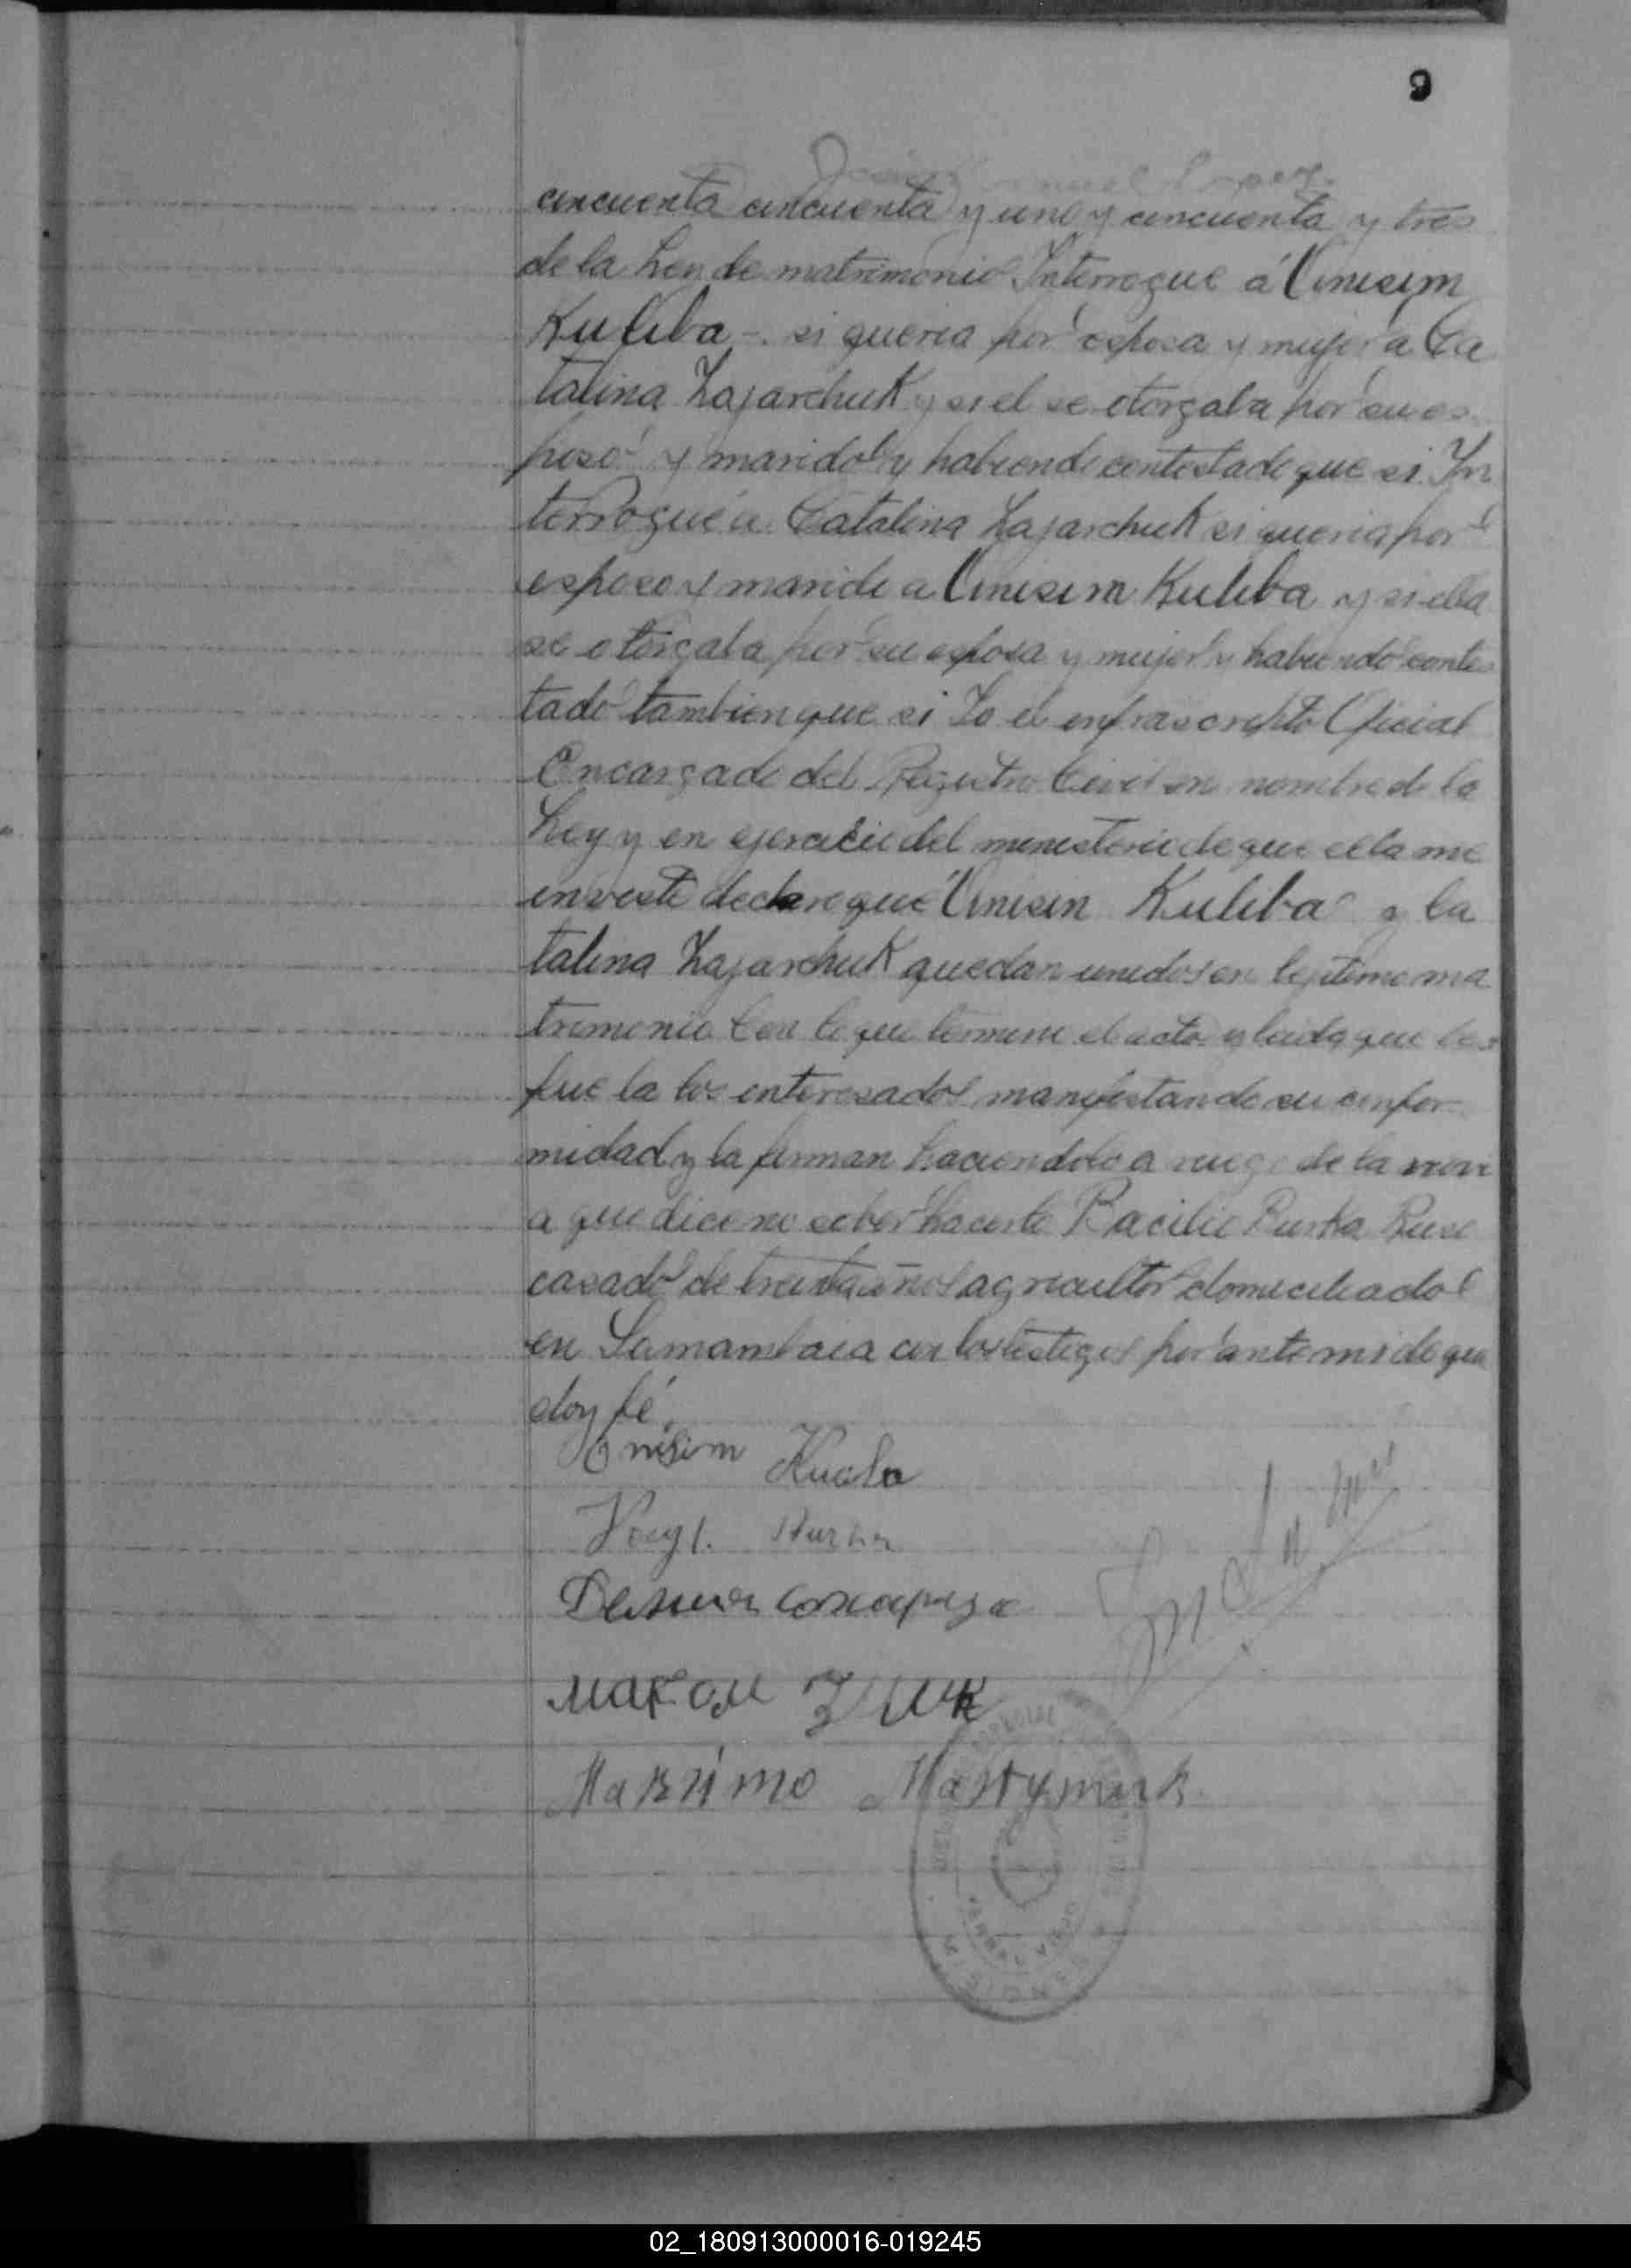 9
cincuenta cincuenta y uno y cincuenta y tres
de la Ley de matrimonio Interrogue á Onisim
Kuliba - si queria por esposa y mujer a Ca
talina Zajarchuk y si el se otorgaba por su es
poso y marido y habiendo contestado que si In
terrogué a Catalina Zajarchuk si queria por
esposo y marido a Onisim Kuliba y si ella
se otorgaba por su esposa y mujer y habiendo contes
tado tambien que si Yo el infrascripto Oficial
Encargado del Registro Civil en nombre de la
Ley y en ejercicio del ministerio de que ella me
inviste declare que Onisin Kuliba y Ca
talina Zajarchuk quedan unidos en legitimo ma
trimonio Con lo que termino el acto y leida que les
fue la los interesados manifestando su confor
midad y la firman haciendolo a ruego de la novi
a que dice no saber hacerlo Bacilio Burka Ruso
casado de treinta años agricultor domiciliado
en Samambaia con los testigos por ante mi de que
doy fé.
Onisim Kuliba
Максим
Макзімо Мартунюк
02_180913000016-019245